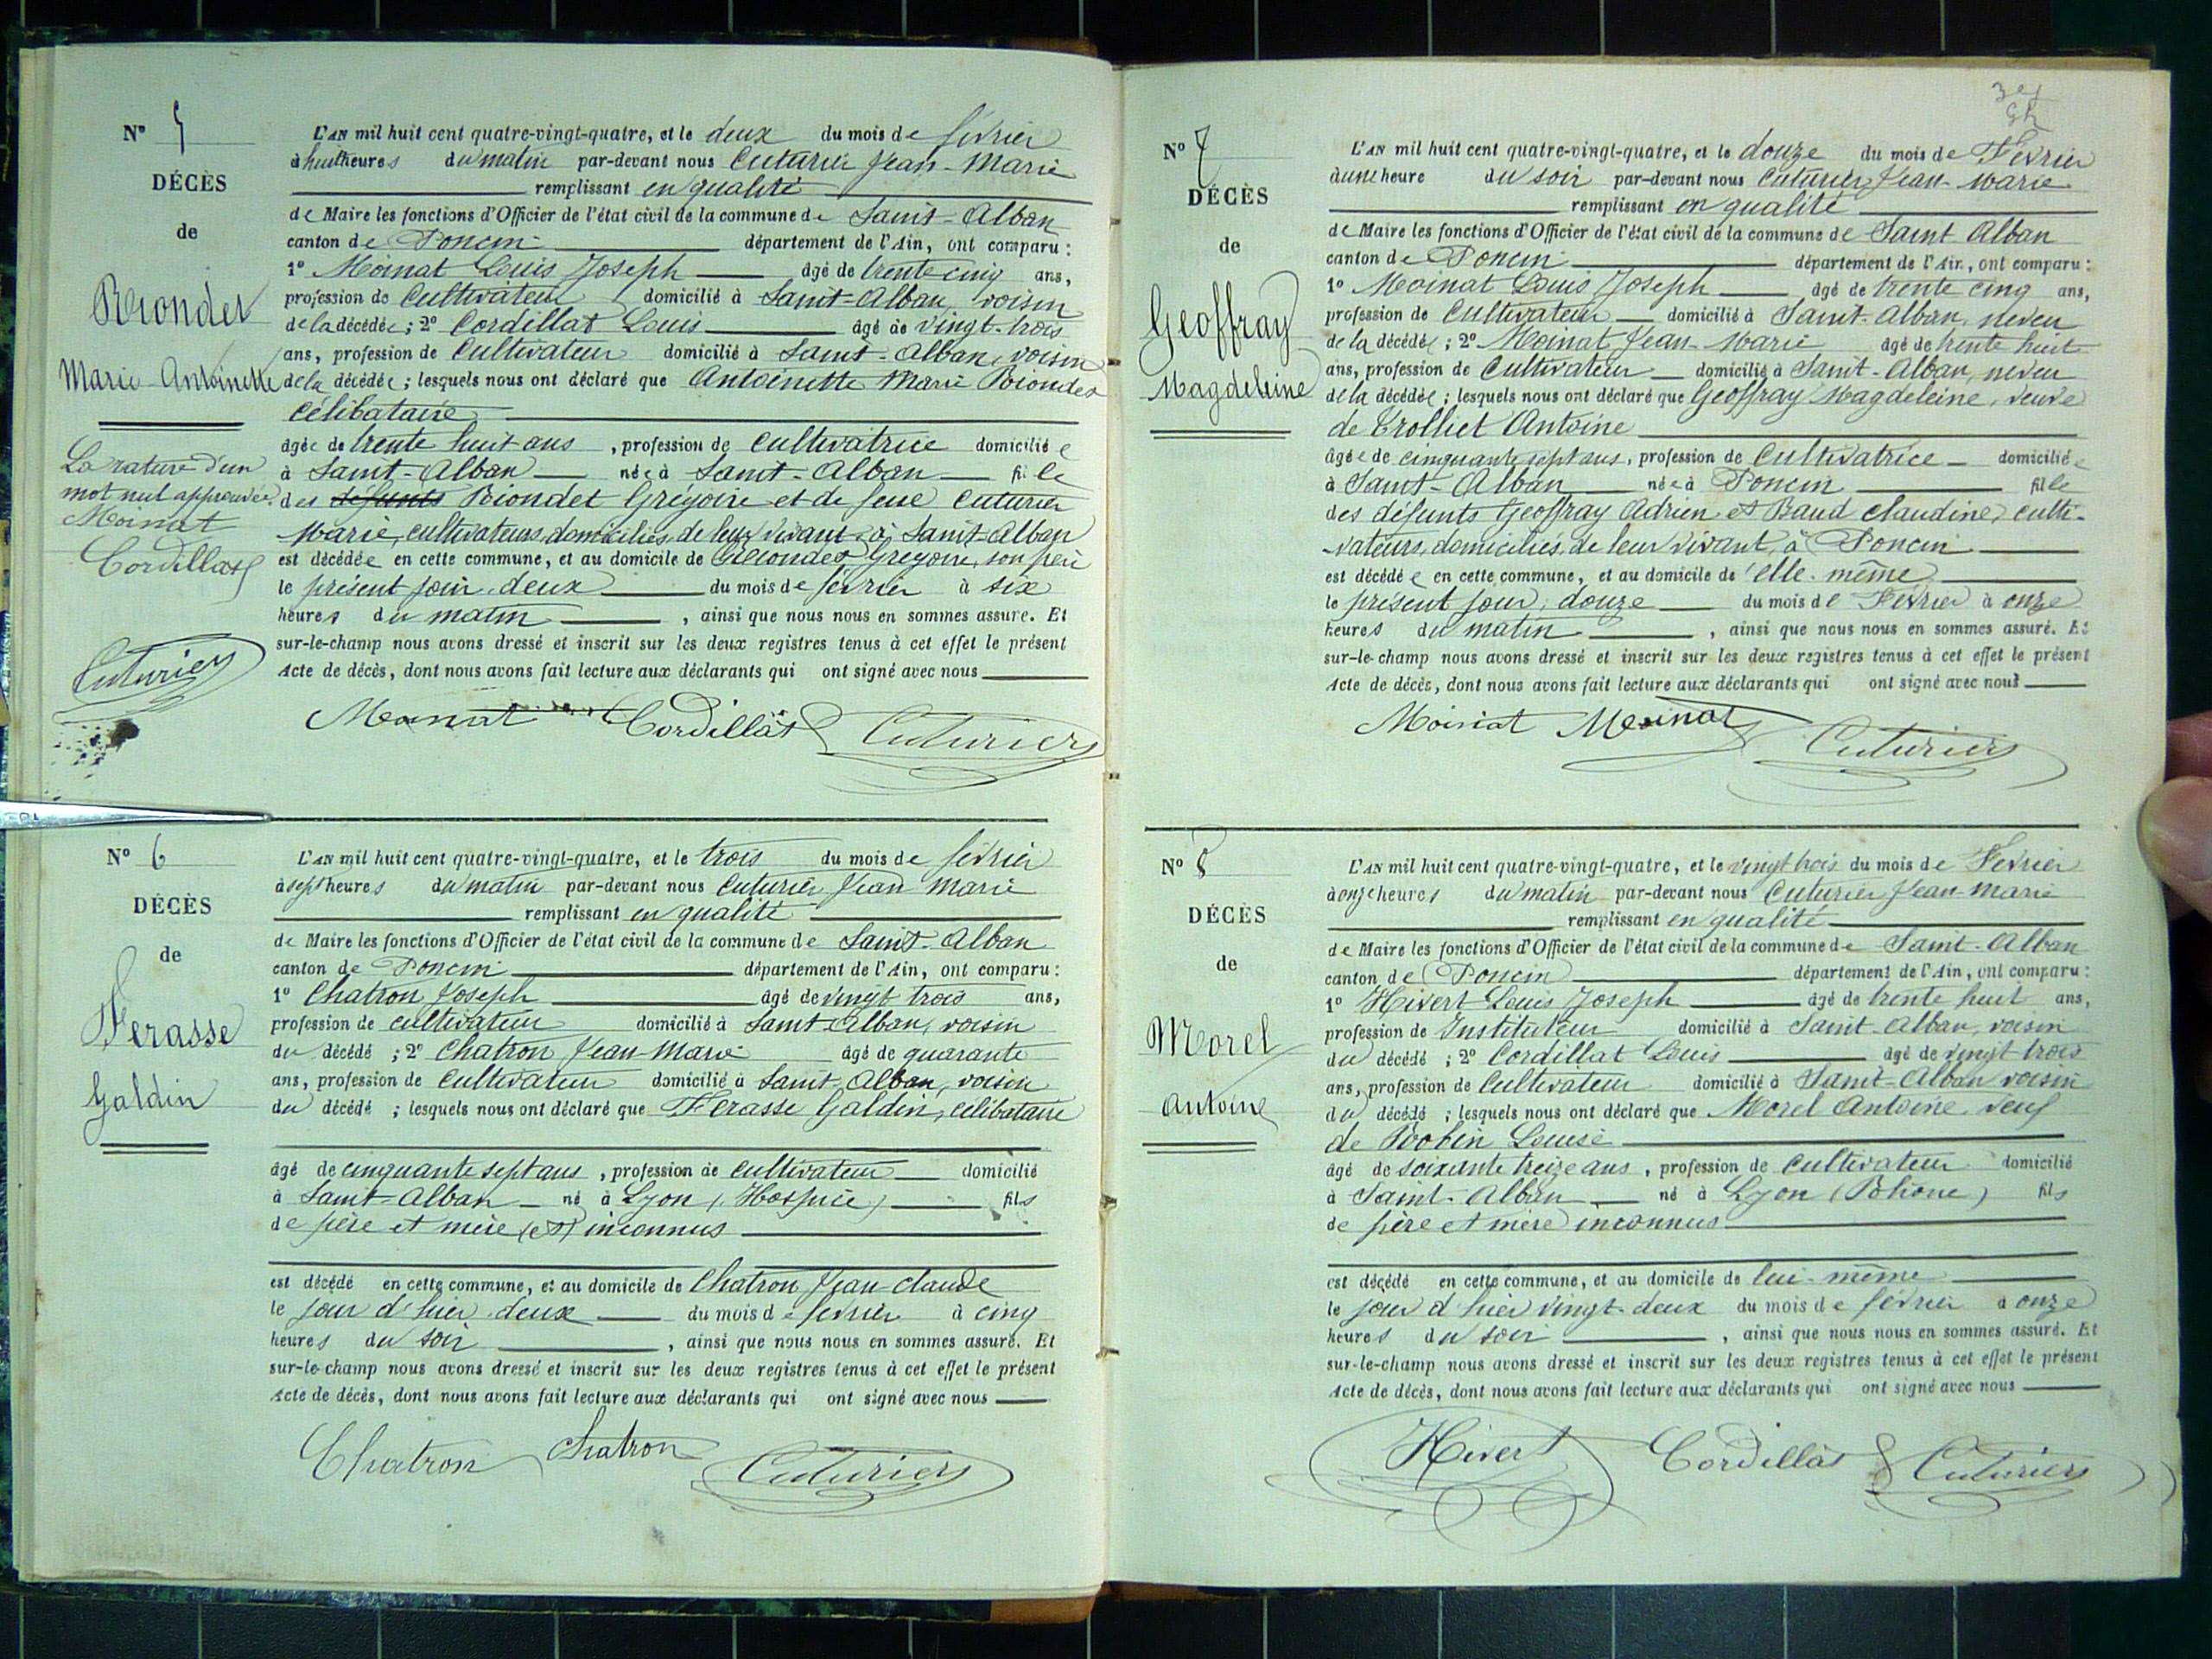 N° 5
DÉCÈS
de
Biondet
Marie-Antoinette
La rature d'un
mot nul approuvée.
Moinat
Cordillat
Cuturier
L'AN mil huit cent quatre-vingt-quatre, et le deux du mois de février
à huit heures du matin par-devant nous Cuturier Jean-Marie
remplissant en qualité
de Maire les fonctions d'Officier de l'état civil de la commune de Saint-Alban
canton de Poncin département de l'Ain, ont comparu :
1° Moinat Louis Joseph âgé de trente cinq ans,
profession de Cultivateur domicilié à Saint-Alban, voisin
de la décédée ; 2° Cordillat Louis âgé de vingt-trois
ans, profession de Cultivateur domicilié à Saint-Alban, voisin
de la décédée ; lesquels nous ont déclaré que Antoinette Marie Biondet
célibataire
âgée de trente huit ans , profession de cultivatrice domiciliée
à Saint-Alban née à Saint-Alban fille
des défunts Biondet Grégoire et de feue Cuturier
Marie, cultivateurs, domiciliés, de leur vivant à Saint-Alban
est décédée en cette commune, et au domicile de Biondet Grégoire, son père
le présent jour deux du mois de février à six
heures du matin , ainsi que nous nous en sommes assuré. Et
sur-le-champ nous avons dressé et inscrit sur les deux registres tenus à cet effet le présent
Acte de décès, dont nous avons fait lecture aux déclarants qui ont signé avec nous
Moinat Cordillat Cuturier
N° 6
DÉCÈS
de
Ferasse
Galdin
L'AN mil huit cent quatre-vingt-quatre, et le trois du mois de février
à sept heures du matin par-devant nous Cuturier Jean-Marie
remplissant en qualité
de Maire les fonctions d'Officier de l'état civil de la commune de Saint-Alban
canton de Poncin département de l'Ain, ont comparu :
1° Chatron Joseph âgé de vingt trois ans,
profession de cultivateur domicilié à Saint-Alban, voisin
du décédé ; 2° Chatron Jean-Marie âgé de quarante
ans, profession de Cultivateur domicilié à Saint-Alban, voisin
du décédé ; lesquels nous ont déclaré que Ferasse Galdin, célibataire
âgé de cinquante sept ans , profession de cultivateur domicilié
à Saint-Alban né à Lyon (Hospice) fils
de père et mère (et) inconnus
est décédé en cette commune, et au domicile de Chatron Jean-Claude
le jour d'hier deux du mois de février à cinq
heures du soir , ainsi que nous nous en sommes assuré. Et
sur-le-champ nous avons dressé et inscrit sur les deux registres tenus à cet effet le présent
Acte de décès, dont nous avons fait lecture aux déclarants qui ont signé avec nous
Chatron Chatron Cuturier
N° 7
DÉCÈS
de
Geoffray
Magdeleine
L'AN mil huit cent quatre-vingt-quatre, et le douze du mois de Février
à une heure du soir par-devant nous Cuturier Jean-Marie
remplissant en qualité
de Maire les fonctions d'Officier de l'état civil de la commune de Saint Alban
canton de Poncin département de l'Ain, ont comparu :
1° Moinat Louis Joseph âgé de trente cinq ans,
profession de Cultivateur domicilié à Saint-Alban, neveu
de la décédée ; 2° Moinat Jean-Marie âgé de trente huit
ans, profession de Cultivateur domicilié à Saint-Alban, neveu
de la décédée ; lesquels nous ont déclaré que Geoffray Magdeleine, veuve
de Trolliet Antoine
âgée de cinquante sept ans, profession de Cultivatrice domiciliée
à Saint-Alban née à Poncin fille
des défunts Geoffray Adrien et Baud Claudine, culti-
-vateurs, domiciliés, de leur vivant, à Poncin
est décédée en cette commune, et au domicile de elle-même
le présent jour, douze du mois de Février à onze
heures du matin , ainsi que nous nous en sommes assuré. Et
sur-le-champ nous avons dressé et inscrit sur les deux registres tenus à cet effet le présent
Acte de décès, dont nous avons fait lecture aux déclarants qui ont signé avec nous
Moinat Moinat Cuturier
N° 8
DÉCÈS
de
Morel
Antoine
L'AN mil huit cent quatre-vingt-quatre, et le vingt trois du mois de Février
à onze heures du matin par-devant nous Cuturier Jean-Marie
remplissant en qualité
de Maire les fonctions d'Officier de l'état civil de la commune de Saint-Alban
canton de Poncin département de l'Ain, ont comparu :
1° Hivert Louis Joseph âgé de trente huit ans,
profession de Instituteur domicilié à Saint-Alban, voisin
du décédé ; 2° Cordillat Louis âgé de vingt trois
ans, profession de Cultivateur domicilié à Saint-Alban voisin
du décédé ; lesquels nous ont déclaré que Morel Antoine, veuf
de Robin Louise
âgé de soixante treize ans , profession de Cultivateur domicilié
à Saint-Alban né à Lyon (Rhône) fils
de père et mère inconnus
est décédé en cette commune, et au domicile de lui-même
le jour d'hier vingt-deux du mois de février à onze
heures du soir , ainsi que nous nous en sommes assuré. Et
sur-le-champ nous avons dressé et inscrit sur les deux registres tenus à cet effet le présent
Acte de décès, dont nous avons fait lecture aux déclarants qui ont signé avec nous
Hivert Cordillat Cuturier